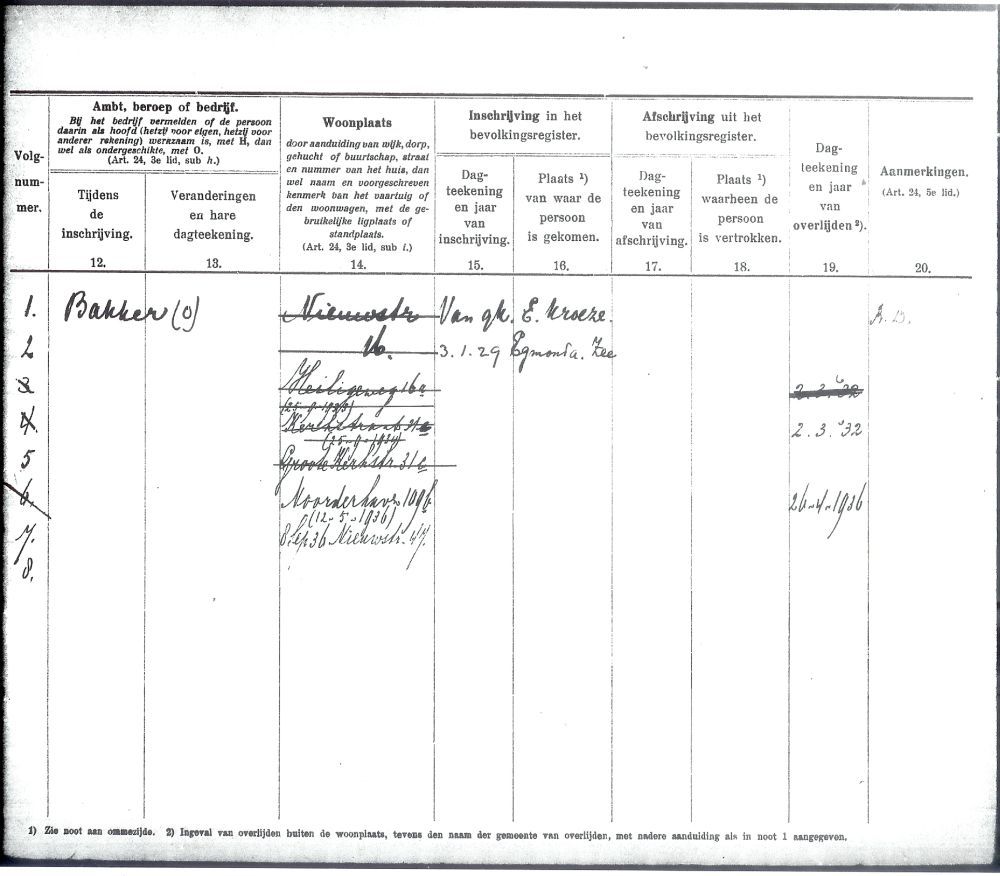 Volg-
num-
mer.
Ambt, beroep of bedrijf.
Bij het bedrijf vermelden of de persoon
daarin als hoofd (hetzij voor eigen, hetzij voor
anderer rekening) werkzaam is, met H, dan
wel als ondergeschikte, met O.
(Art. 24, 3e lid, sub h.)
Tijdens
de
inschrijving.
12.
Veranderingen
en hare
dagteekening.
13.
Woonplaats
door aanduiding van wijk, dorp,
gehucht of buurtschap, straat
en nummer van het huis, dan
wel naam en voorgeschreven
kenmerk van het vaartuig of
den woonwagen, met de ge-
bruikelijke ligplaats of
standplaats.
(Art. 24, 3e lid, sub i.)
14.
Inschrijving in het
bevolkingsregister.
Dag-
teekening
en jaar
van
inschrijving.
15.
Plaats 1)
van waar de
persoon
is gekomen.
16.
Afschrijving uit het
bevolkingsregister.
Dag-
teekening
en jaar
van
afschrijving.
17.
Plaats 1)
waarheen de
persoon
is vertrokken.
18.
Dag-
teekening
en jaar
van
overlijden 2).
19.
Aanmerkingen.
(Art. 24, 5e lid.)
20.
1. Bakker (O) Nieuwstr Van gk. E. Kroeze.
2 16. 3.1.29 Egmond a. Zee
3. Heiligeweg 16a 2.3.32
(25-9-1933)
4. Kerkstraat 31c 2.3.32
(25-9-1934)
5 Groote Kerkstr. 31c
6. Noorderhaven 109b 26-4-1936
(12-5-1936)
7. 8 Sep 36 Nieuwstr. 47.
8.
1) Zie noot aan ommezijde. 2) Ingeval van overlijden buiten de woonplaats, tevens den naam der gemeente van overlijden, met nadere aanduiding als in noot 1 aangegeven.